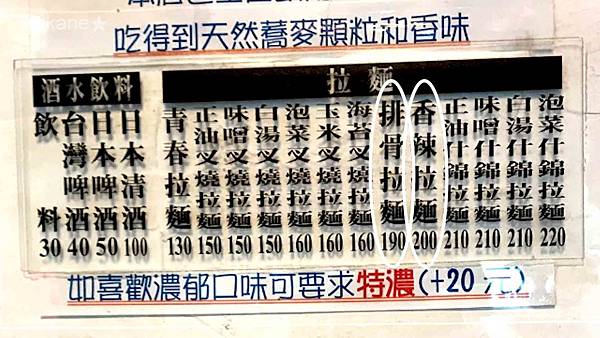 kane★
吃得到天然蕎麥顆粒和香味
酒水飲料
飲料 30
台灣啤酒 40
日本啤酒 50
日本清酒 100
拉麵
青春拉麵 130
正油叉燒拉麵 150
味噌叉燒拉麵 150
白湯叉燒拉麵 150
泡菜叉燒拉麵 160
玉米叉燒拉麵 160
海苔叉燒拉麵 160
排骨拉麵 190
香辣拉麵 200
正油什錦拉麵 210
味噌什錦拉麵 210
白湯什錦拉麵 210
泡菜什錦拉麵 220
如喜歡濃郁口味可要求特濃(+20元)